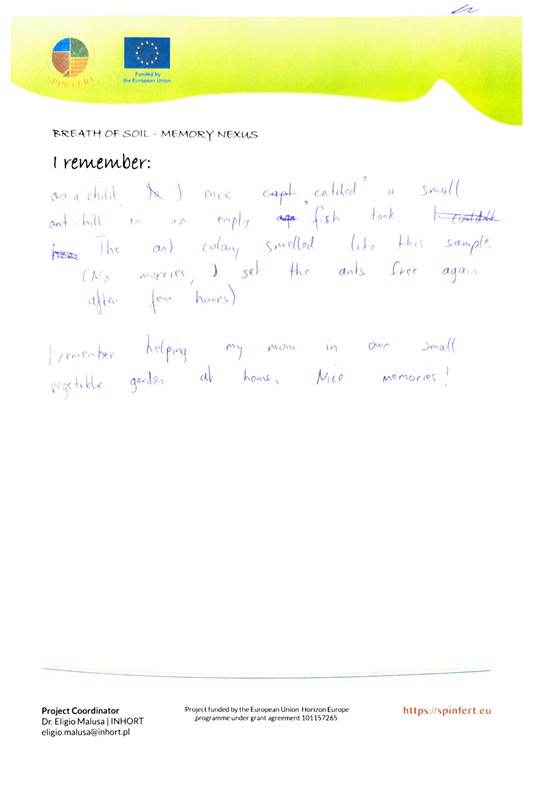 SPINFERT
Funded by
the European Union
BREATH OF SOIL - MEMORY NEXUS
I remember:
as a child, I once "catched" a small
ant-hill in an empty fish tank.
The ant colony smelled like this sample.
(No worries, I set the ants free again
after few hours)
I remember helping my mom in our small
vegetable garden at home. Nice memories!
Project Coordinator
Dr. Eligio Malusa | INHORT
eligio.malusa@inhort.pl
Project funded by the European Union Horizon Europe
programme under grant agreement 101157265.
https://spinfert.eu